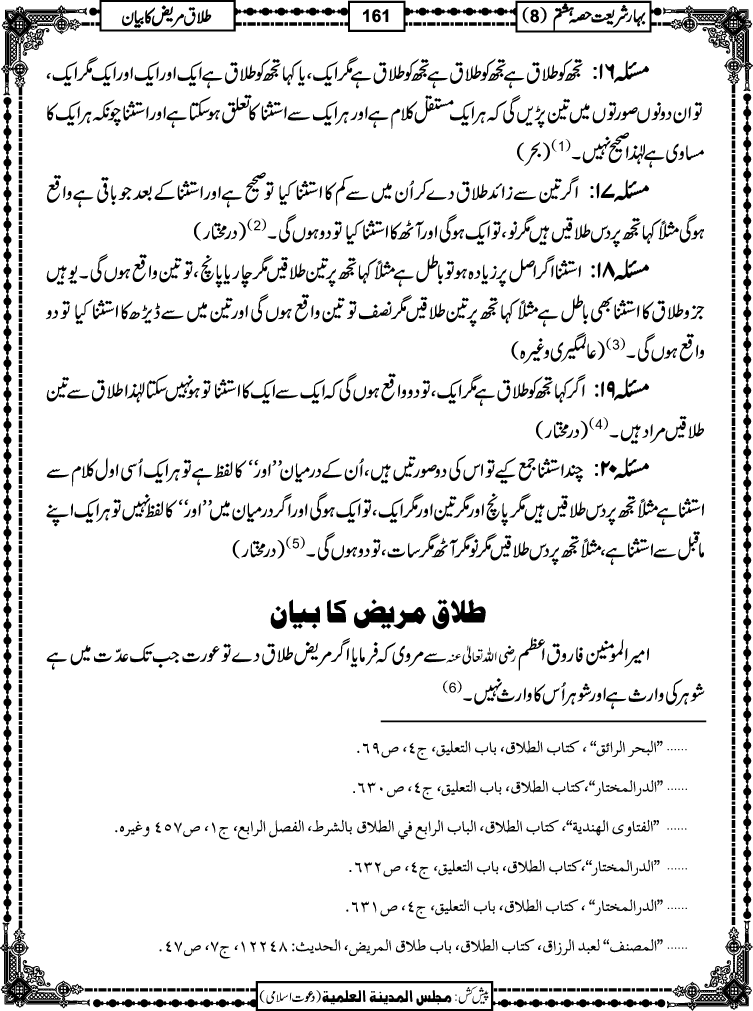 بہارِ شریعت حصہ ہشتم (8)
161
طلاق مریض کا بیان
مسئلہ ۱۶: تجھ کو طلاق ہے تجھ کو طلاق ہے تجھ کو طلاق ہے مگر ایک، یا کہا تجھ کو طلاق ہے ایک اور ایک اور ایک مگر ایک،
تو ان دونوں صورتوں میں تین پڑیں گی کہ ہر ایک مستقل کلام ہے اور ہر ایک سے استثنا کا تعلق ہوسکتا ہے اور استثنا چونکہ ہر ایک کا
مساوی ہے لہٰذا صحیح نہیں۔(1) (بحر)
مسئلہ ۱۷: اگر تین سے زائد طلاق دے کر اُن میں سے کم کا استثنا کیا تو صحیح ہے اور استثنا کے بعد جو باقی ہے واقع
ہوگی مثلاً کہا تجھ پر دس طلاقیں ہیں مگر نو، تو ایک ہوگی اور آٹھ کا استثنا کیا تو دو ہوں گی۔(2) (درمختار)
مسئلہ ۱۸: استثنا اگر اصل پر زیادہ ہو تو باطل ہے مثلاً کہا تجھ پر تین طلاقیں مگر چار یا پانچ، تو تین واقع ہوں گی۔ یوہیں
جزو طلاق کا استثنا بھی باطل ہے مثلاً کہا تجھ پر تین طلاقیں مگر نصف تو تین واقع ہوں گی اور تین میں سے ڈیڑھ کا استثنا کیا تو دو
واقع ہوں گی۔(3) (عالمگیری وغیرہ)
مسئلہ ۱۹: اگر کہا تجھ کو طلاق ہے مگر ایک، تو دو واقع ہوں گی کہ ایک سے ایک کا استثنا تو ہو نہیں سکتا لہٰذا طلاق سے تین
طلاقیں مراد ہیں۔(4) (درمختار)
مسئلہ ۲۰: چند استثنا جمع کیے تو اس کی دو صورتیں ہیں، اُن کے درمیان ’’اور‘‘ کا لفظ ہے تو ہر ایک اُسی اول کلام سے
استثنا ہے مثلاً تجھ پر دس طلاقیں ہیں مگر پانچ اور مگر تین اور مگر ایک، تو ایک ہوگی اور اگر درمیان میں ’’اور‘‘ کا لفظ نہیں تو ہر ایک اپنے
ماقبل سے استثنا ہے، مثلاً تجھ پر دس طلاقیں مگر نو مگر آٹھ مگر سات، تو دو ہوں گی۔(5) (درمختار)
طلاق مریض کا بیان
امیرالمومنین فاروق اعظم رضی اللہ تعالٰی عنہ سے مروی کہ فرمایا اگر مریض طلاق دے تو عورت جب تک عدّت میں ہے
شوہر کی وارث ہے اور شوہر اُس کا وارث نہیں۔(6)
...... ”البحر الرائق“، کتاب الطلاق، باب التعلیق، ج٤، ص٦٩.
...... ”الدرالمختار“، کتاب الطلاق، باب التعلیق، ج٤، ص٦٣٠.
...... ”الفتاوی الھندیة“، کتاب الطلاق، الباب الرابع في الطلاق بالشرط، الفصل الرابع، ج١، ص٤٥٧ وغیره.
...... ”الدرالمختار“، کتاب الطلاق، باب التعلیق، ج٤، ص٦٣٢.
...... ”الدرالمختار“، کتاب الطلاق، باب التعلیق، ج٤، ص٦٣١.
...... ”المصنف“ لعبد الرزاق، کتاب الطلاق، باب طلاق المریض، الحدیث: ١٢٢٤٨، ج٧، ص٤٧.
پیش کش: مجلس المدینة العلمیة (دعوت اسلامی)